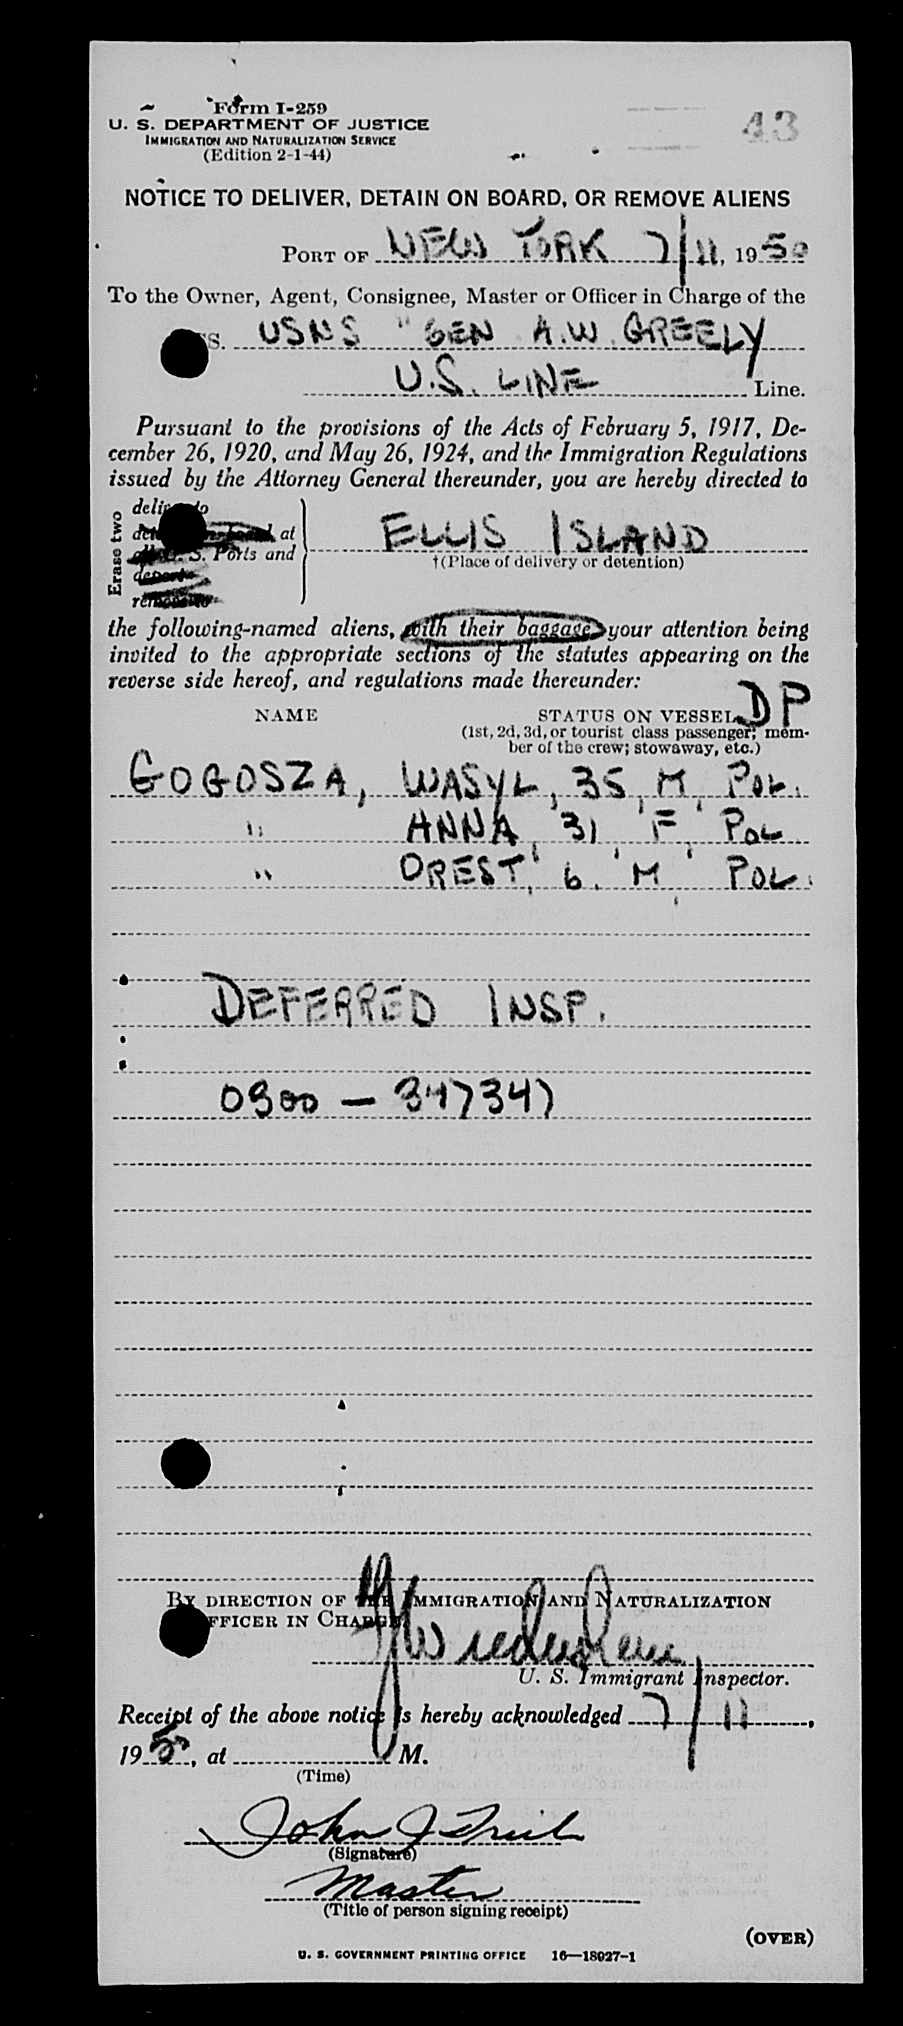 Form I-259
43
U. S. DEPARTMENT OF JUSTICE
IMMIGRATION AND NATURALIZATION SERVICE
(Edition 2-1-44)
NOTICE TO DELIVER, DETAIN ON BOARD, OR REMOVE ALIENS
PORT OF NEW YORK 7/11, 1950
To the Owner, Agent, Consignee, Master or Officer in Charge of the
SS. USNS "GEN A.W. GREELY
U.S. LINE Line.
Pursuant to the provisions of the Acts of February 5, 1917, De-
cember 26, 1920, and May 26, 1924, and the Immigration Regulations
issued by the Attorney General thereunder, you are hereby directed to
Erase two
deliver to
at
U. S. Ports and
deport
remove to
ELLIS ISLAND
†(Place of delivery or detention)
the following-named aliens, with their baggage, your attention being
invited to the appropriate sections of the statutes appearing on the
reverse side hereof, and regulations made thereunder:
NAME STATUS ON VESSEL DP
(1st, 2d, 3d, or tourist class passenger; mem-
ber of the crew; stowaway, etc.)
GOGOSZA, WASYL, 35, M, POL.
" ANNA, 31, F, POL.
" OREST, 6, M, POL.
DEFERRED INSP.
0300 — 347347
BY DIRECTION OF THE IMMIGRATION AND NATURALIZATION
OFFICER IN CHARGE
U. S. Immigrant Inspector.
Receipt of the above notice is hereby acknowledged 7/11,
1950, at M.
(Time)
John J
(Signature)
Master
(Title of person signing receipt)
(OVER)
U. S. GOVERNMENT PRINTING OFFICE 16—18027-1